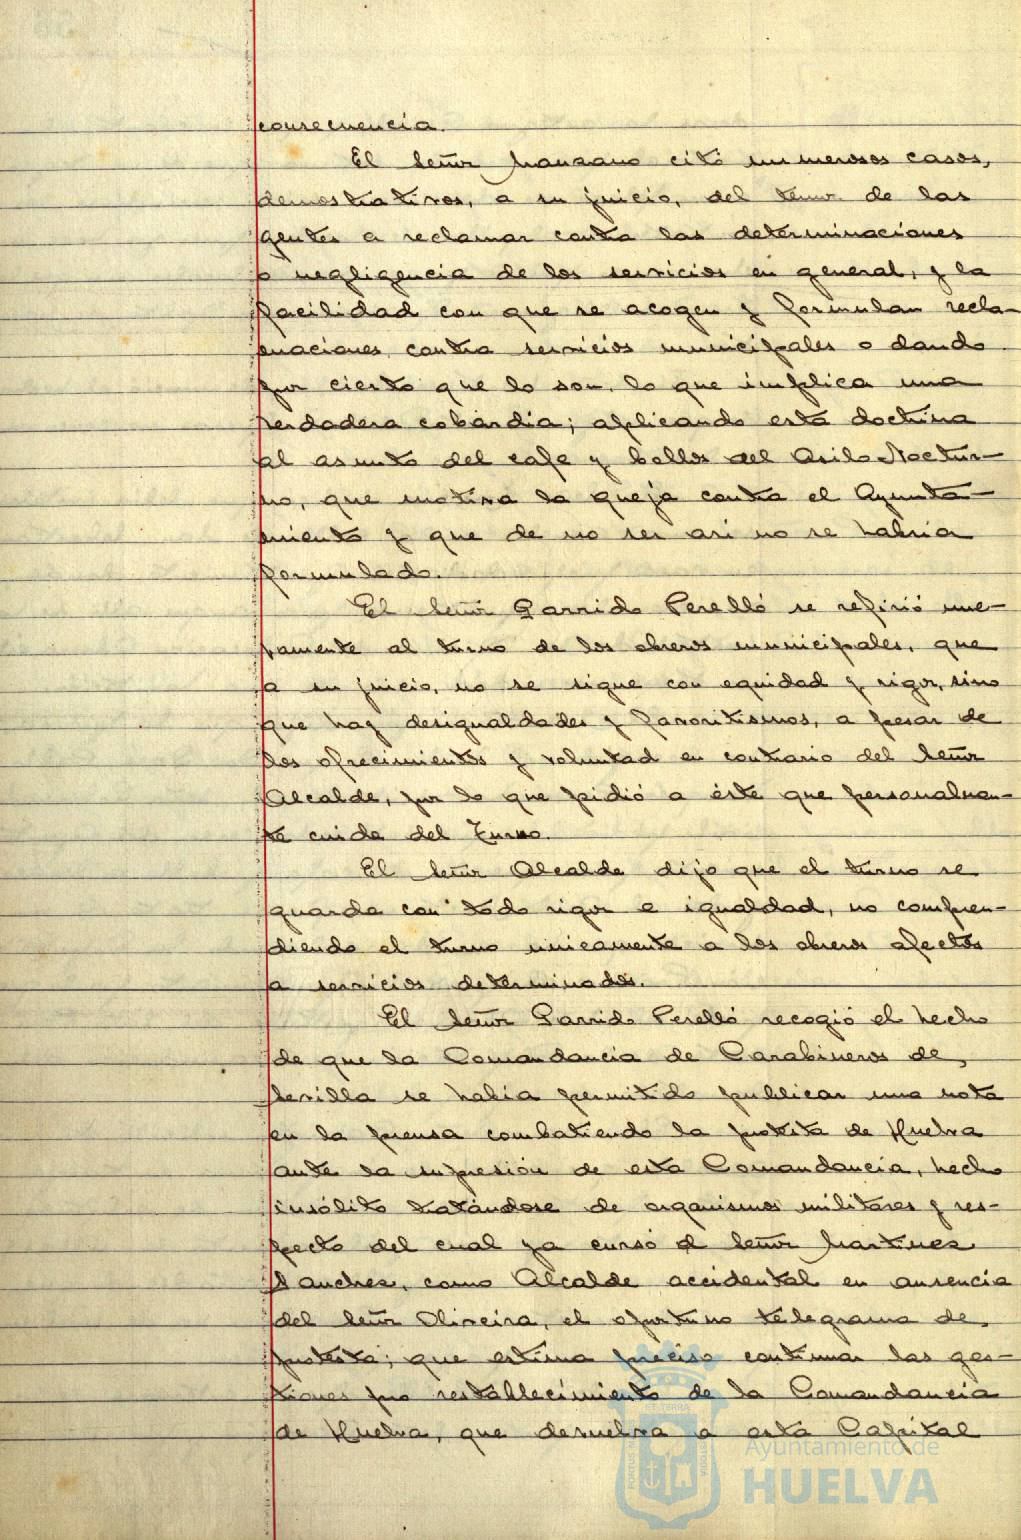 consecuencia.
El Señor Manzano citó numerosos casos,
demostrativos, a su juicio, del temor de las
gentes a reclamar contra las determinaciones
o negligencia de los servicios en general, y la
facilidad con que se acogen y formulan recla-
maciones contra servicios municipales o dando
por cierto que lo son, lo que implica una
verdadera cobardía; aplicando esta doctrina
al asunto del café y bollos del Asilo Noctur-
no, que motiva la queja contra el Ayunta-
miento y que de no ser asi no se habria
formulado.
El Señor Garrido Perelló se refirió nue-
vamente al turno de los obreros municipales, que
a su juicio, no se sigue con equidad y rigor, sino
que hay desigualdades y favoritismos, a pesar de
los ofrecimientos y voluntad en contrario del Señor
Alcalde, por lo que pidió a éste que personalmen-
te cuide del Turno.
El Señor Alcalde dijo que el turno se
guarda con todo rigor e igualdad, no compren-
diendo el turno unicamente a los obreros afectos
a servicios determinados.
El Señor Garrido Perelló recogió el hecho
de que la Comandancia de Carabineros de
Sevilla se habia permitido publicar una nota
en la prensa combatiendo la protesta de Huelva
ante la supresión de esta Comandancia, hecho
insólito tratándose de organismos militares y res-
pecto del cual ya cursó el Señor Martinez
Sanchez, como Alcalde accidental en ausencia
del Señor Oliveira, el oportuno telegrama de
protesta; que estima preciso continuar las ges-
tiones pro restablecimiento de la Comandancia
de Huelva, que devuelva a esta Capital
Ayuntamiento de
HUELVA